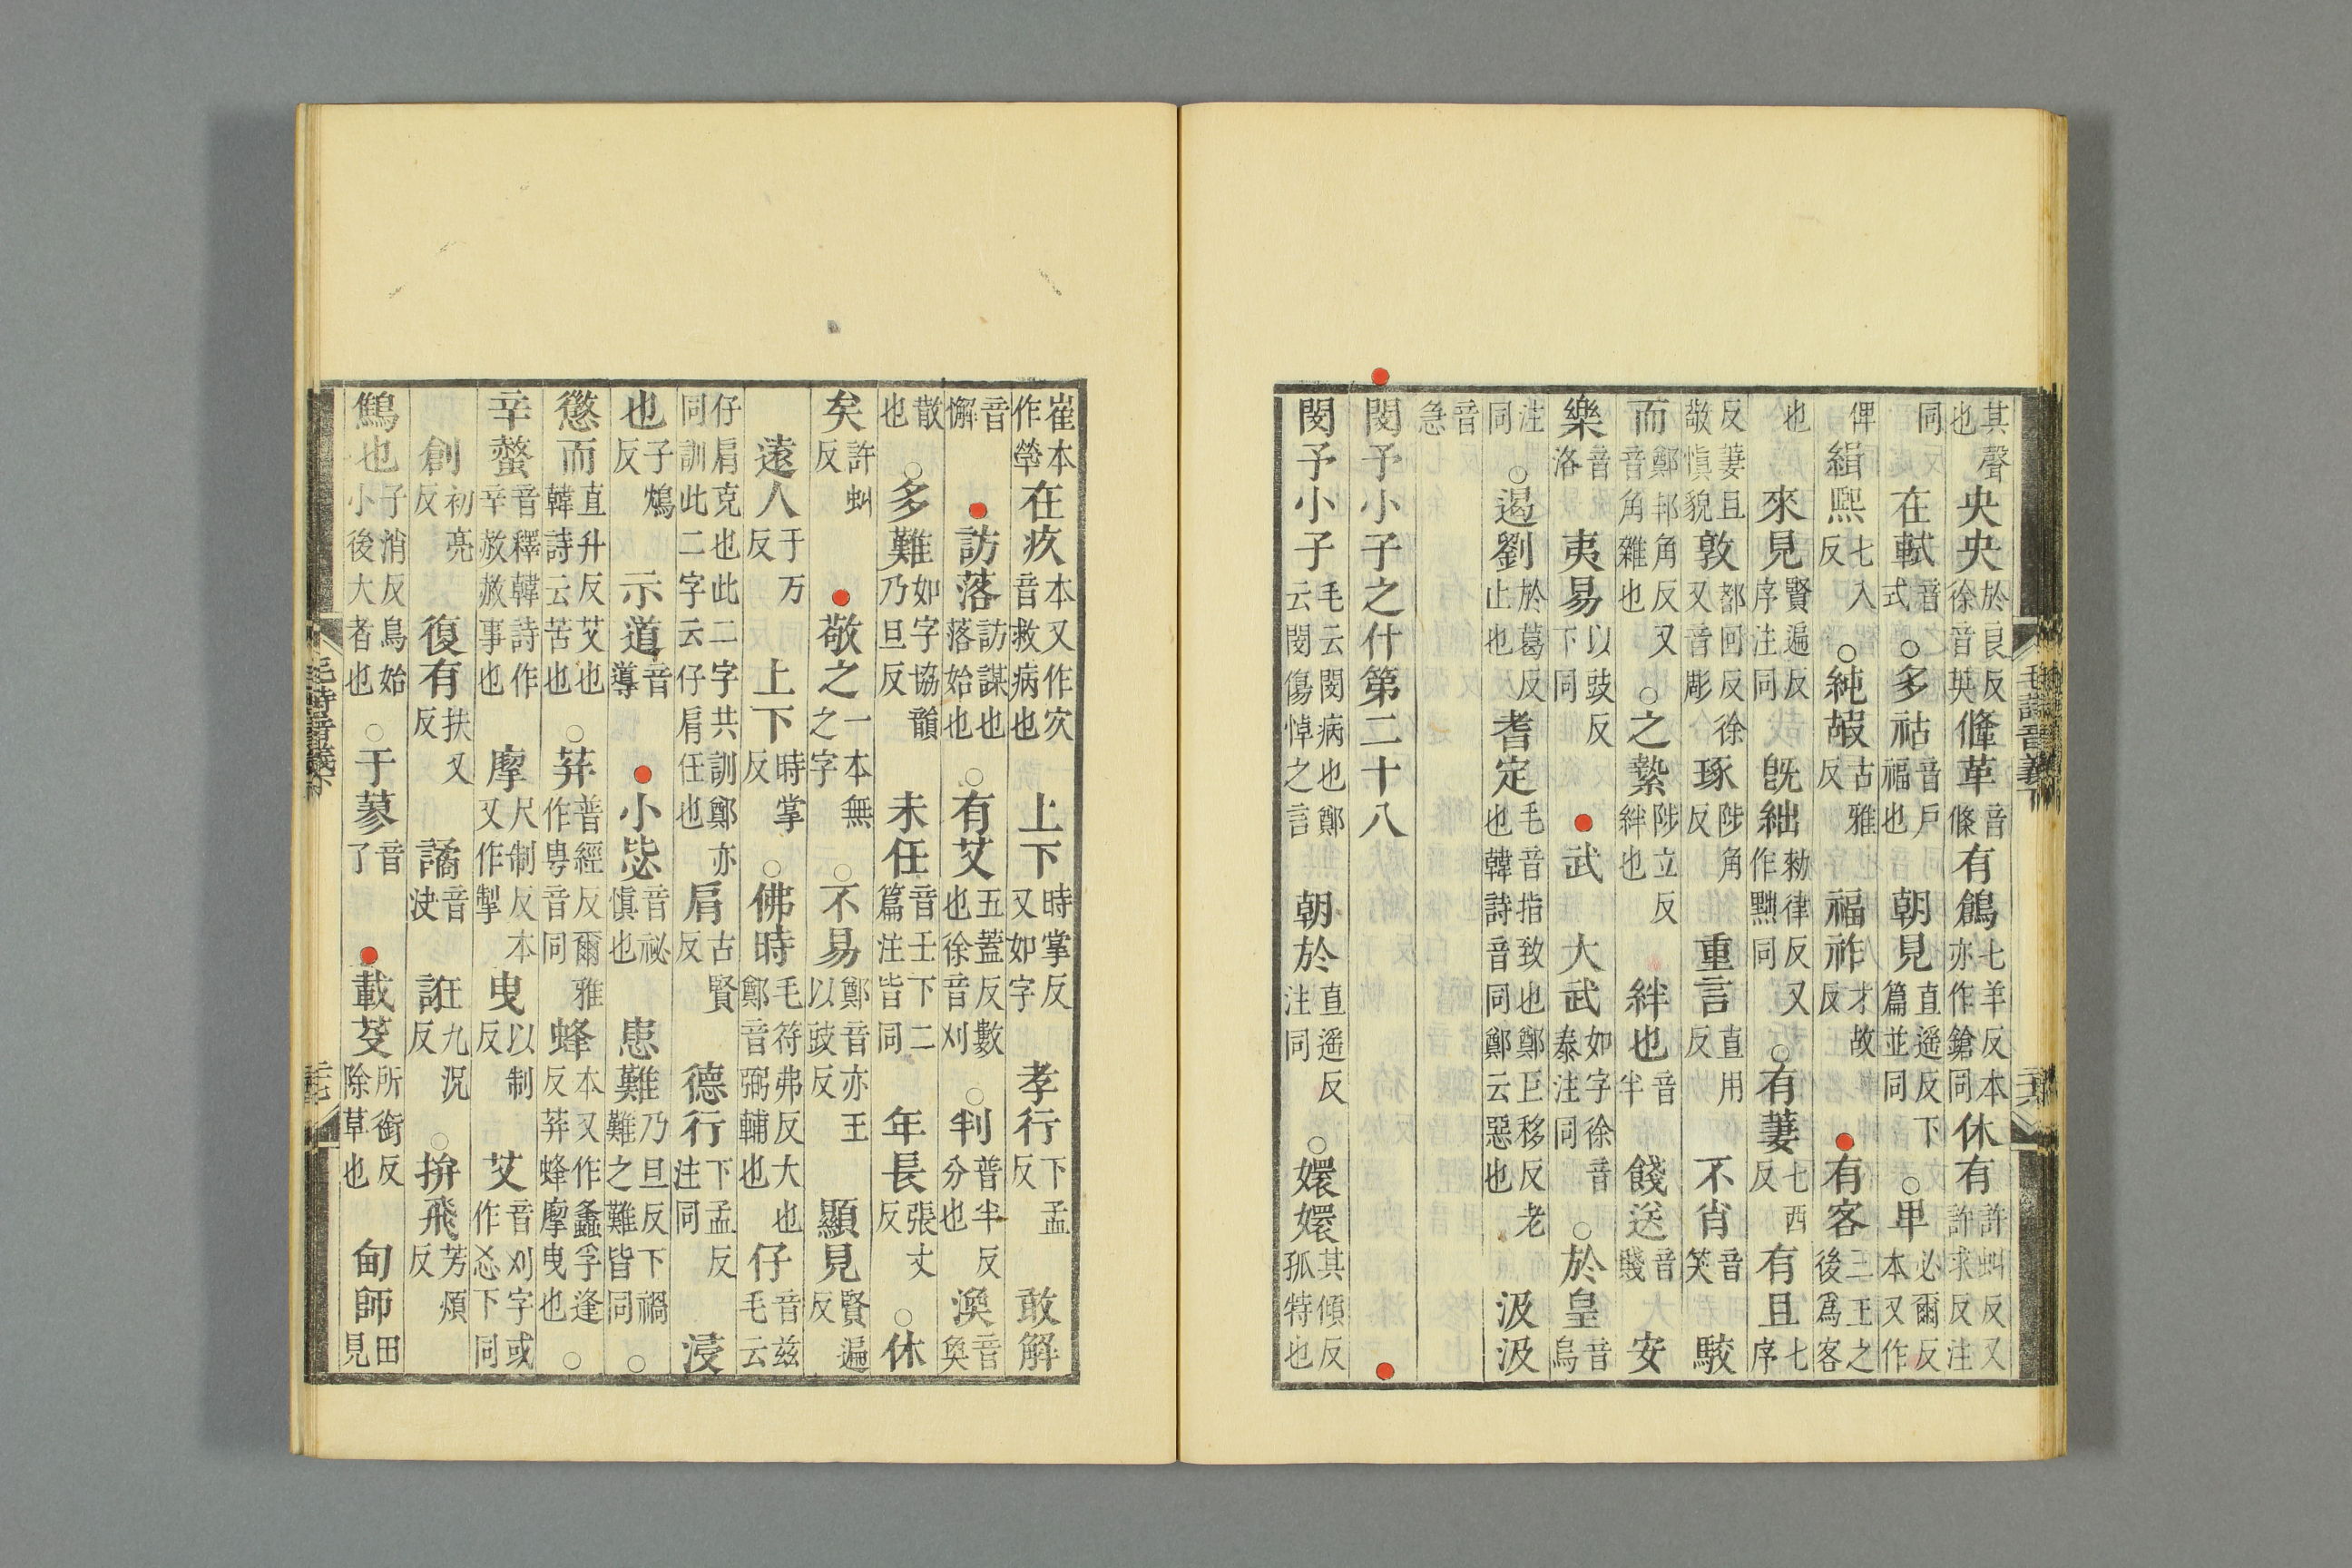 其聲也央央於良反徐音英鞗革音條有鶬七羊反本亦作鎗同休有許虯反又許求反注
同在軾音式○多祜音戶福也朝見直遥反下篇並同○卑必爾反本又作
俾緝熙七入反○純嘏古雅反福祚才故反有客二王之後爲客
也來見賢遍反序注同旣絀勑律反又作黜同○有萋七西反有且七序
反萋且敬慎貌敦都回反徐又音彫琢陟角反重言直用反不肖音笑駮
而鄭邦角反又音角雜也○之縶陟立反絆也絆也音半餞送音賤安
樂音洛夷易以豉反下同武大武如字徐音泰注同○於皇音烏
注同○遏劉於葛反止也耆定毛音指致也鄭巨移反老也韓詩音同鄭云惡也汲汲
音急
閔予小子之什第二十八
閔予小子毛云閔病也鄭云閔傷悼之言朝於直遥反注同○嬛嬛其傾反孤特也
崔本作㷀在疚本又作㝌音救病也上下時掌反又如字孝行下孟反敢解
音懈訪落訪謀也落始也○有艾五蓋反數也徐音刈○判普半反分也渙音奐
散也○多難如字協韻乃旦反未任音壬下二篇注皆同年長張丈反○休
矣許虯反敬之一本無之字○不易鄭音亦王以豉反顯見賢遍反
遠人于万反上下時掌反○佛時毛符弗反大也鄭音弼輔也仔音兹毛云
仔肩克也此二字共訓鄭亦同訓此二字云仔肩任也肩古賢反德行下孟反注同浸
也子鴆反示道音導小毖音祕慎也患難乃旦反下禍難之難皆同○
懲而直升反艾也韓詩云苦也○荓普經反爾雅作甹音同蜂本又作螽孚逢反荓蜂摩曳也○
辛螫音釋韓詩作辛赦赦事也摩尺制反本又作掣曳以制反艾音刈字或作忞下同
創初亮反復有扶又反譎音決誑九況反○拚飛芳煩反
鷦也子消反鳥始小後大者也○于蓼音了載芟所銜反除草也甸師田見
毛詩音義下